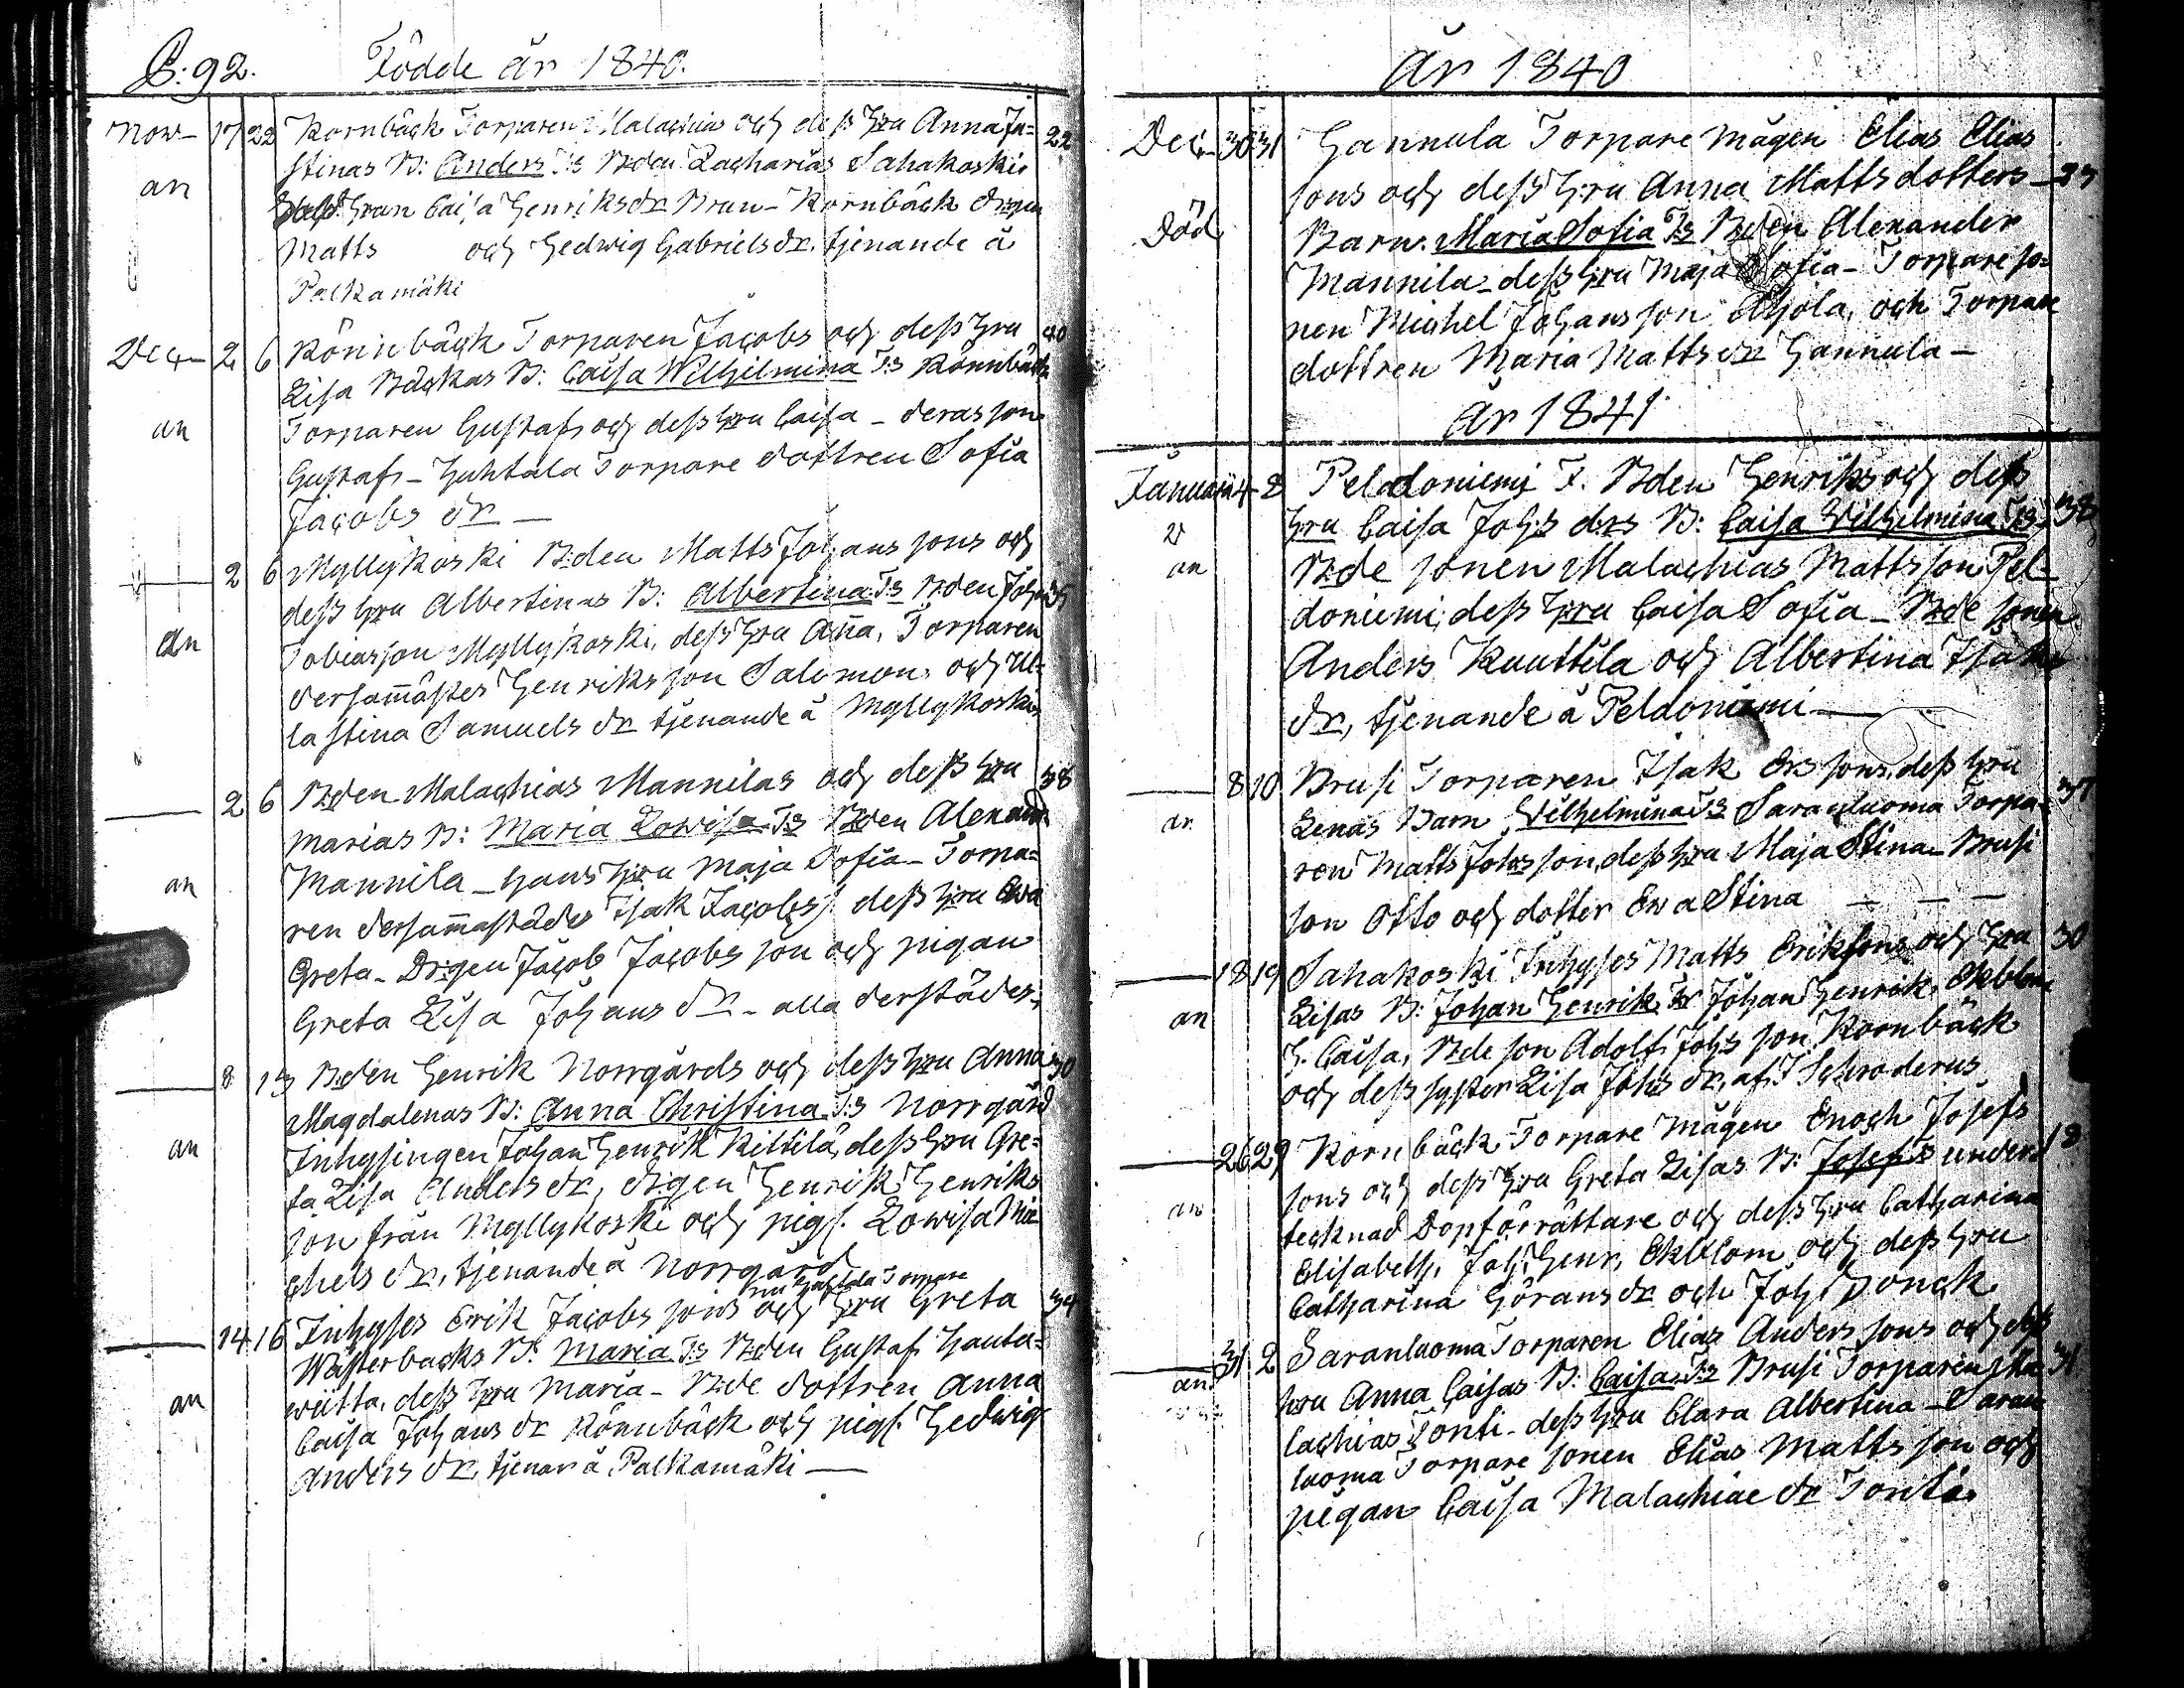 S: 92. Födde år 1840.
Nov- 17 22 Kornbäck Torparen Malachias och deß Hru Anna Ju= 22
stinas B: Anders Ts Bden Zacharias Sahakoski,
an deß Hrun Caisa Henriksdr Brun - Kornbäck drgen
Matts och Hedwig Gabrielsdr. tjenande å
Palkamäki
Dec- 2 6 Könnbäck Torparen Jacobs och deß Hru 40
Lisa Backas B: Caisa Wilhelmina Ts Könnbäck
an Torparen Gustaf, och deß Hru Caisa - deras son
Gustaf - Huhtala Torpare dottren Sofia
Jacobs dr -
2 6 Myllykoski Bden Matts Johans sons och
deß Hru Albertinas B: Albertina Ts Bden Johan 35
an Tobiasson Myllykoski, deß Hru Anna, Torparen
dersammastes Henriksson Salomon och Ul=
la Stina Samuels dr tjenande å Myllykoski
2 6 Bden Malachias Mannilas och deß Hru 38
Marias B: Maria Lowisa Ts Bden Alexand.
an Mannila - hans Hru Maja Sofia - Torpa=
ren dersammastädes Isak Jacobs s. deß Hru Ewa
Greta - Drgen Jacob Jacobs son och pigan
Greta Lisa Johans dr - alla derstädes.
8 13 Bden Henrik Norrgårds och deß Hru Anna 30
Magdalenas B: Anna Christina Ts Norrgård
an Inhysingen Johan Henrik Kittilä, deß Hru Gre=
ta Lisa Anders dr, drgen Henrik Henriks
son från Myllykoski och pigs. Lowisa Mi=
chels dr, tjenande å Norrgård
14 16 Inhyses Erik Jacobs sons och Hru Greta 34
Wästerbacks B: Maria Ts Bden Gustaf Hauta=
an wiitta, deß Hru Maria - Bde dottren Anna
Caisa Johans dr Könnbäck och pigs. Hedwig
Anders dr, tjenar å Palkamäki -
År 1840
Dec- 30 31 Hannula Torpare mågen Elias Elias
sons och deß Hru Anna Matts dotters - 23
Död Barn. Maria Sofia Ts Bden Alexander
Mannila - deß Hru Maja Sofia - Torpare so=
nen Michel Johansson och Torpare
dottren Maria Matts dr Hannula -
År 1841
Januarii 4 8 Peldoniemi F. Bden Henriks och deß
Hru Caisa Johs drs B: Caisa Wilhelmina Ts 38
an Bde sonen Malachias Mattsson Pel
doniemi, deß Hru Caisa Sofia - Bde sonen
Anders Kuuttila och Albertina Isaks
dr, tjenande å Peldoniemi -
8 10 Brusi Torparen Isak Ers sons, deß Hru 37
an Lenas Barn Wilhelmina Ts Saranluoma Torpa=
ren Matts Johs son, deß Hru Maja Stina - Brusi
son Otto och dotter Ewa Stina - - -
18 19 Sahakoski Inhyses Matts Eriksons och Hru 30
an Lisas B: Johan Henrik Ts Johan Henrik Ekblom
H. Caisa, Bde son Adolf Johs son Kornbäck
och deß syster Lisa Johs dr, af J Schroderus
26 29 Kornbäck Torpare mågen Enoch Josefs
an sons och deß Hru Greta Lisas B: Josef Ts under= 18
tecknad Dopförrättare och deß Hru Catharina
Elisabeth, Joh: Henr, Ekblom och deß Hru
Catharina Görans dr och Joh:
31 2 Saranluoma Torparen Elias Anders sons och deß
an Hru Anna Caisas B: Caisa Ts Brusi Torparen Ma 31
lachias Tonti - deß Hru Clara Albertina - Saran
luoma Torpare sonen Elias Matts son och
pigan Caisa Malachiae dr Tonti.